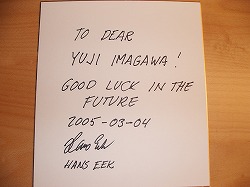 TO DEAR
YUJI IMAGAWA!
GOOD LUCK IN THE
FUTURE
2005-03-04
Hans Eek
HANS EEK